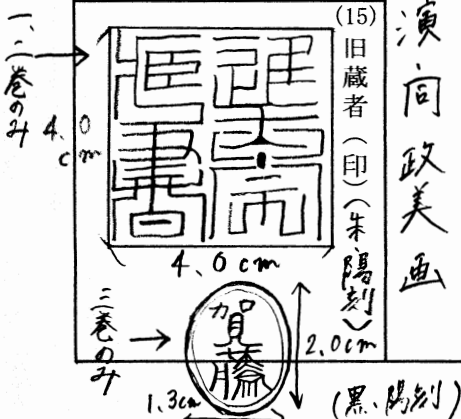 政美画
(15)旧蔵者(印)(朱陽刻)
一、二巻のみ
4.0cm
4.0cm
三巻のみ
賀藤
2.0cm
1.3cm
(黒、陽刻)